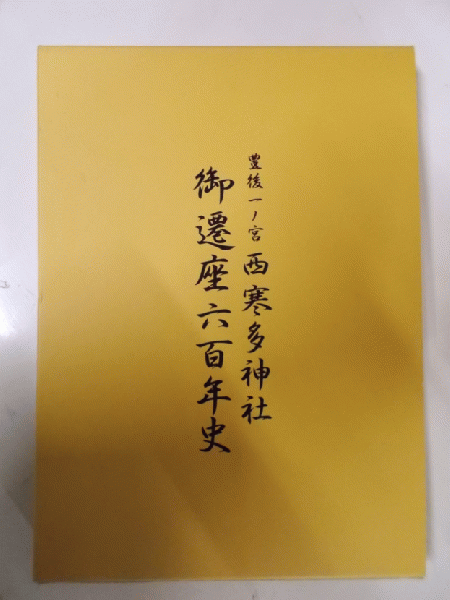 豊後一ノ宮西寒多神社
御遷座六百年史